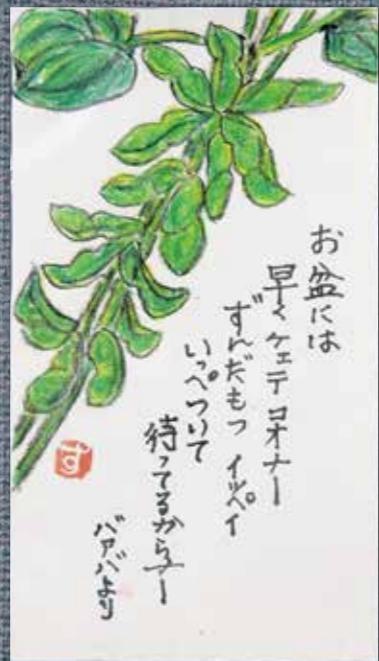 お盆には
早くケェテコオナー
ずんだもつイッペイ
いっぺついて
待ってるからナー
バァバより
す